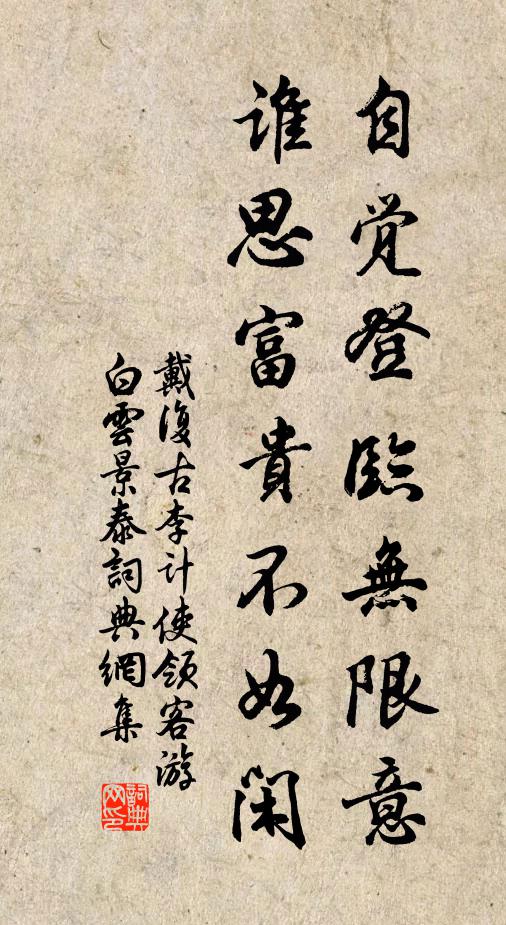 自觉登臨無限意
誰思富貴不如閑
戴復古李计使領客游
白雲景泰詞典網集
詞典网印